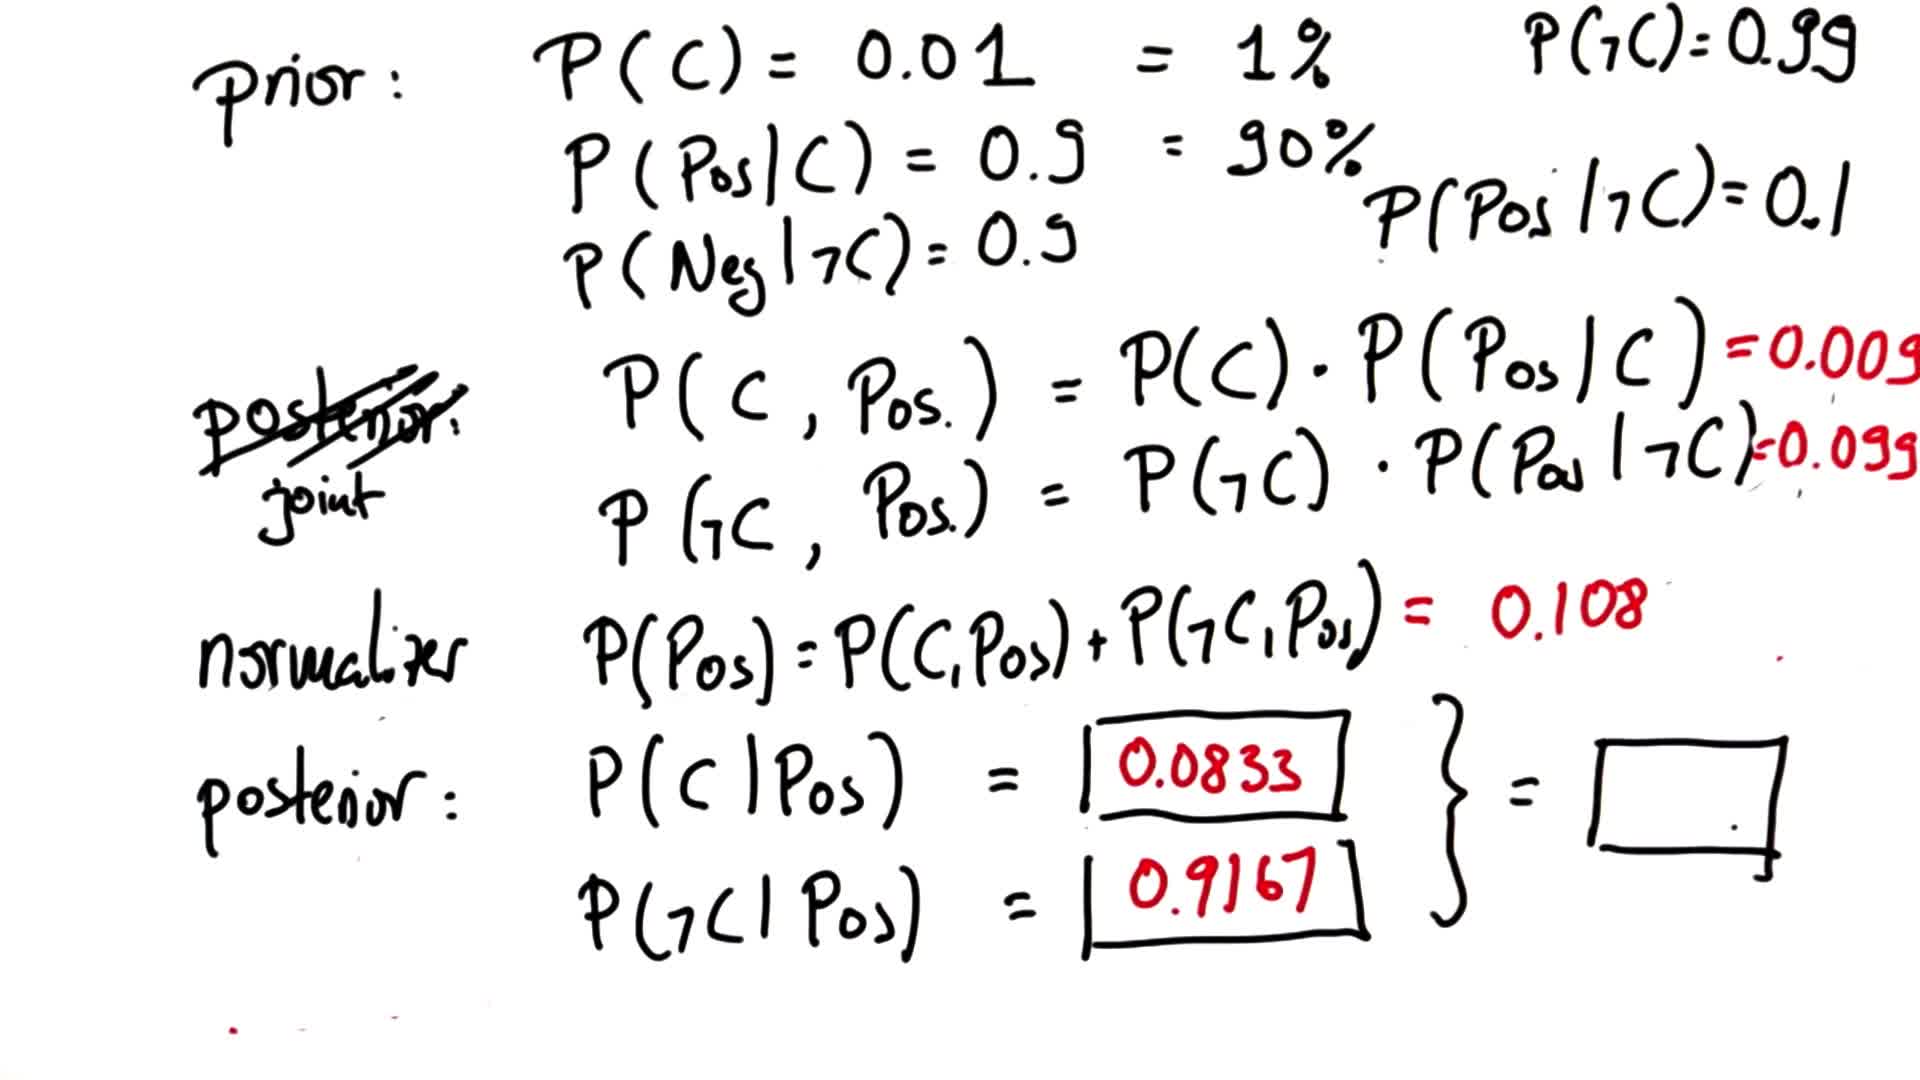 prior: P(C) = 0.01 = 1% P(¬C) = 0.99
P(Pos|C) = 0.9 = 90%
P(Pos|¬C) = 0.1
P(Neg|¬C) = 0.9
posterior: P(C, Pos.) = P(C) · P(Pos|C) = 0.009
joint P(¬C, Pos.) = P(¬C) · P(Pos|¬C) = 0.099
normalizer P(Pos) = P(C, Pos) + P(¬C, Pos) = 0.108
posterior: P(C|Pos) = 0.0833 } =
P(¬C|Pos) = 0.9167